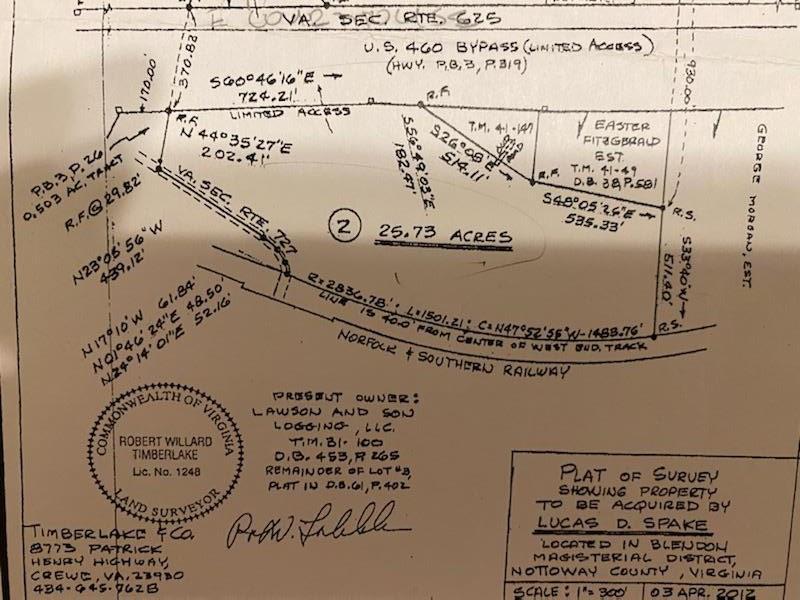 VA. SEC. RTE. 625
U.S. 460 BYPASS (LIMITED ACCESS)
(HWY. P.B.3, P.319)
170.00'
370.82'
930.00'
S60°46'16"E
724.21'
LIMITED ACCESS
R.F.
R.F.
N 44°35'27"E
202.41'
S56°49'03"E
182.47'
S26°08'E
514.11'
T.M. 41-147
EASTER
FITZGERALD
EST.
T.M. 41-49
D.B. 38, P. 581
GEORGE MORGAN, EST.
R.F.
S48°05'26"E
535.33'
R.S.
P.B.3, P.26
0.503 AC. TRACT
R.F. @ 29.82'
VA. SEC. RTE. 727
2
25.73 ACRES
S33°40'W
511.40'
N23°05'56"W
439.12'
N17°10'W 61.84'
N01°46'24"E 48.50'
N24°14'01"E 52.16'
R=2836.78' L=1501.21' C=N47°52'55"W-1483.76'
R.S.
LINE IS 40.0' FROM CENTER OF WEST BND. TRACK
NORFOLK & SOUTHERN RAILWAY
COMMONWEALTH OF VIRGINIA
ROBERT WILLARD
TIMBERLAKE
Lic. No. 1248
LAND SURVEYOR
PRESENT OWNER:
LAWSON AND SON
LOGGING, LLC.
T.M. 31-100
D.B. 453, P. 265
REMAINDER OF LOT #3,
PLAT IN D.B. 61, P. 402
TIMBERLAKE & CO.
8773 PATRICK
HENRY HIGHWAY,
CREWE, VA. 23930
434-645-7628
PLAT OF SURVEY
SHOWING PROPERTY
TO BE ACQUIRED BY
LUCAS D. SPAKE
LOCATED IN BLENDON
MAGISTERIAL DISTRICT,
NOTTOWAY COUNTY, VIRGINIA
SCALE: 1"=300' 03 APR. 2012